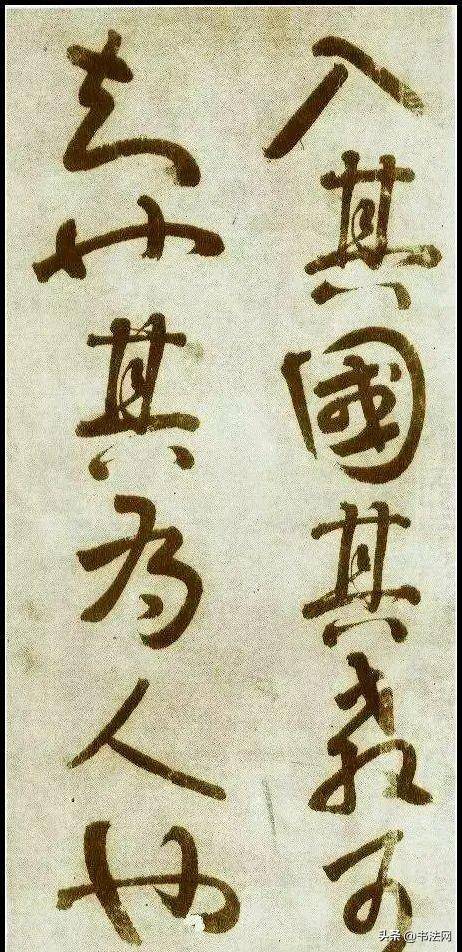 入其國其教可
知也其為人也
头条 @书法网